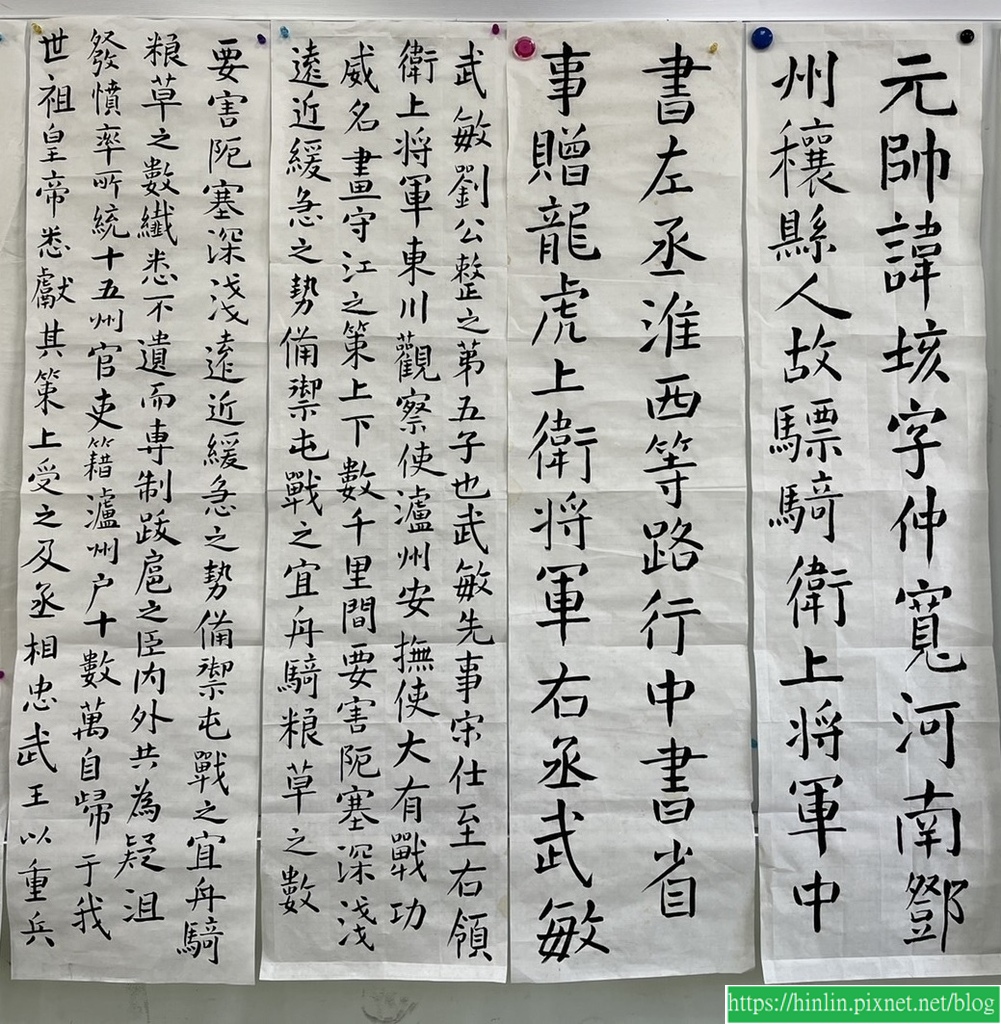 元帥諱垓字仲寬河南鄧
州穰縣人故驃騎衛上將軍中
書左丞淮西等路行中書省
事贈龍虎上衛將軍右丞武敏
武敏劉公整之第五子也武敏先事宋仕至右領
衛上將軍東川觀察使瀘州安撫使大有戰功
威名畫守江之策上下數千里間要害阨塞深淺
遠近緩急之勢備禦屯戰之宜舟騎粮草之數
要害阨塞深淺遠近緩急之勢備禦屯戰之宜舟騎
粮草之數纖悉不遺而專制跋扈之臣內外共為疑沮
發憤率所統十五州官吏籍瀘州户十數萬自歸于我
世祖皇帝悉獻其策上受之及丞相忠武王以重兵
https://hinlin.pixnet.net/blog